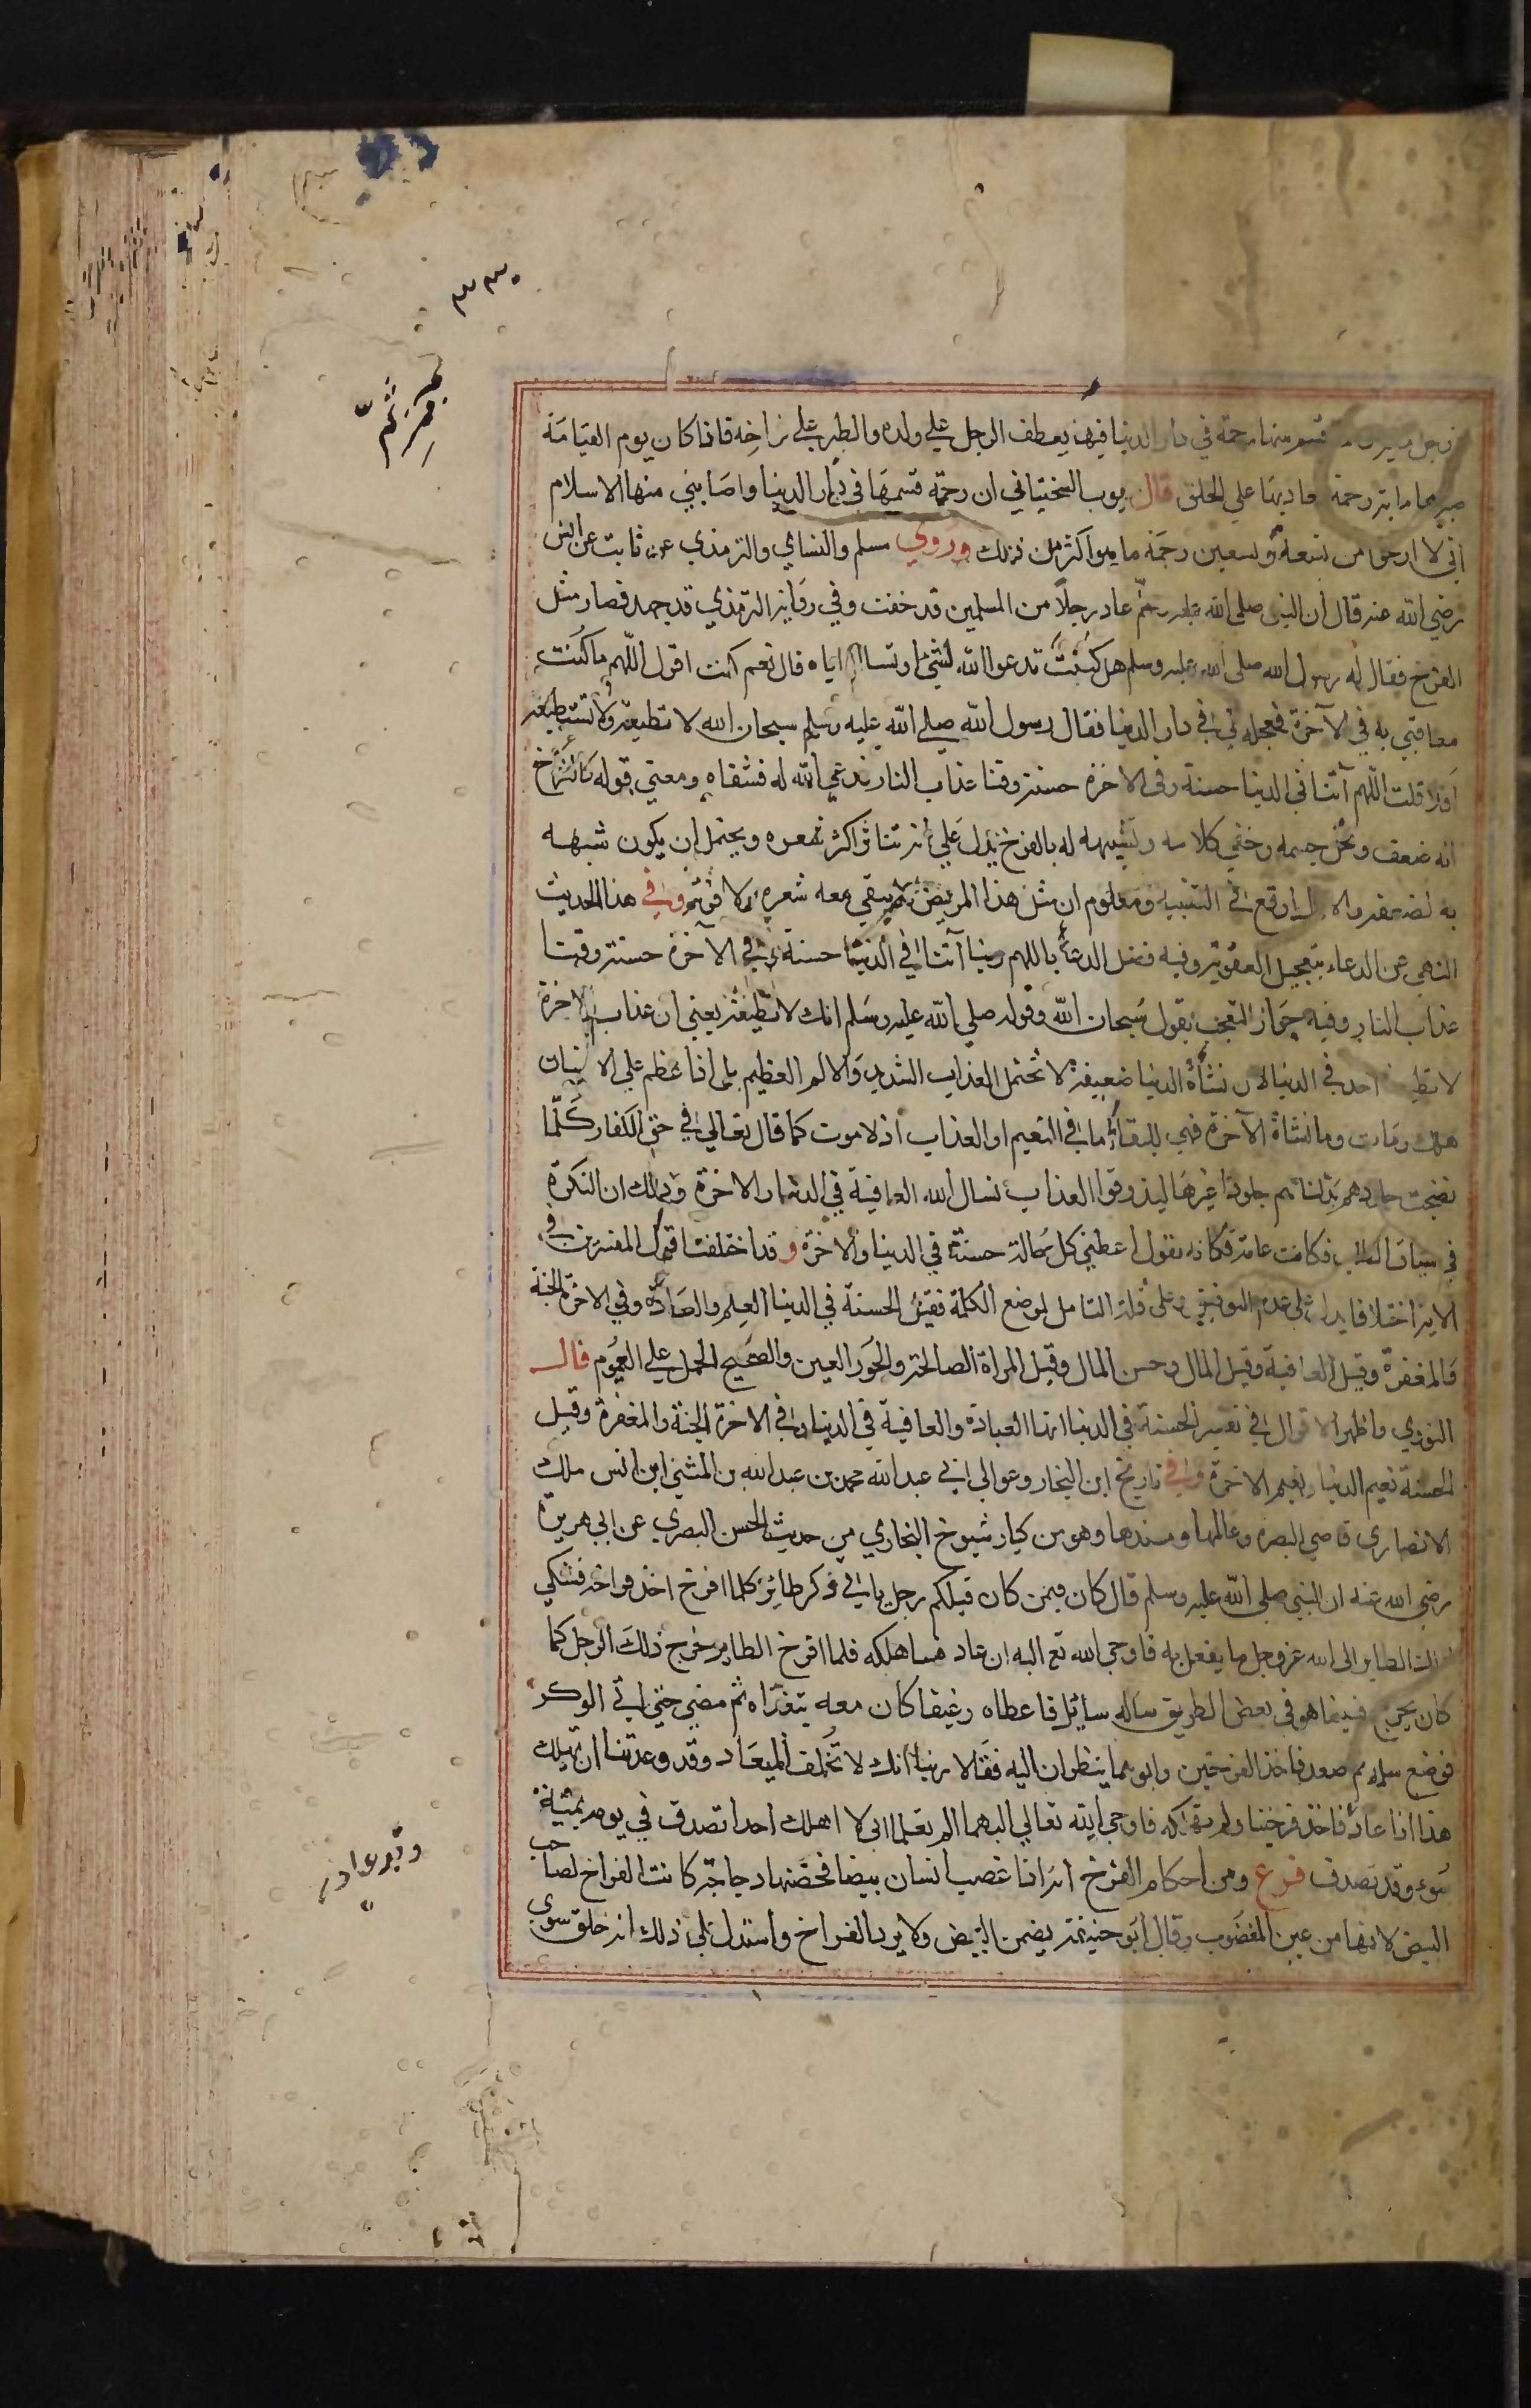 ٣٣٠
قسم منها رحمة في دار الدنيا فبها يعطف الرجل علي ولده والطير علي فراخه فاذا كان يوم القيامة
صيرها ماية رحمة فعاد بها علي الخلق قال ايوب السختياني ان رحمة قسمها في دار الدنيا واصابني منها الاسلام
اني لا ارجوا من تسعة وتسعين رحمة ما هو اكثر من ذلك وروي مسلم والنساي والترمذي عن ثابت عن انس
رضي الله عنه قال ان النبي صلى الله عليه وسلم عاد رجلا من المسلمين قد خفت وفي رواية الترمذي قد جهد فصار مثل
الفرخ فقال له رسول الله صلى الله عليه وسلم هل كنت تدعوا الله بشئ او تساله اياه قال نعم كنت اقول اللهم ما كنت
معاقبي به في الآخرة فعجله لي في دار الدنيا فقال رسول الله صلي الله عليه وسلم سبحان الله لا تطيقه ولا تستطيعه
افلا قلت اللهم آتنا في الدنيا حسنة وفي الاخرة حسنة وقنا عذاب النار فدعي الله له فشفاه ومعني قوله كالفرخ
انه ضعف ونحل جسمه وخفي كلامه وتشبيهه له بالفرخ يدل علي انه تناثر اكثر شعره ويحتمل ان يكون شبهه
به لضعفه والاول اوقع في التشبيه ومعلوم ان مثل هذا المرض لا يبقي معه شعر ولا قوة وفي هذا الحديث
النهي عن الدعاء بتعجيل العقوبة وفيه فضل الدعاء باللهم ربنا آتنا في الدنيا حسنة وفي الآخرة حسنة وقنا
عذاب النار وفيه جواز التعجب بقول سبحان الله وقوله صلي الله عليه وسلم انك لا تطيقه يعني ان عذاب الاخرة
لا يطيقه احد في الدنيا لان نشأة الدنيا ضعيفة لا تحتمل العذاب الشديد والالم العظيم بل اذا عظم علي الانسان
هلك ومات وما نشاة الآخرة فهي للبقاء اما في النعيم او العذاب اذ لا موت كما قال تعالي في حق الكفار كلما
نضجت جلودهم بدلناهم جلودا غيرها ليذوقوا العذاب نسال الله العافية في الدنيا والاخرة وذلك ان النكرة
في سياق الطلب فكانت عامة فكانه يقول اعطني كل حالة حسنة في الدنيا والاخرة وقد اختلفت اقوال المفسرين في
الاية اختلافا يدل علي عدم التوفيق وعلى قلة التامل لموضع الكلمة فقيل الحسنة في الدنيا العلم والعبادة وفي الاخرة الجنة
والمغفرة وقيل العافية وقيل المال وحسن المال وقيل المراة الصالحة والحور العين والصحيح الحمل علي العموم قال
النووي واظهر الاقوال في تفسير الحسنة في الدنيا انها العبادة والعافية في الدنيا وفي الاخرة الجنة والمغفرة وقيل
الحسنة نعيم الدنيا ونعيم الاخرة وفي تاريخ ابن النجار وعوالي ابي عبد الله محمد بن عبد الله بن المثني ابن انس ملك
الانصاري قاضي البصره وعالمها ومسندها وهو من كبار شيوخ البخاري من حديث الحسن البصري عن ابي هريرة
رضي الله عنه ان النبي صلى الله عليه وسلم قال كان فيمن كان قبلكم رجل ياتي وكر طائر كلما افرخ اخذ فراخه فشكي
ذلك الطاير الى الله عز وجل ما يفعل به فاوحي الله تع اليه ان عاد فساهلكه فلما افرخ الطاير خرج ذلك الرجل كما
كان يخرج فبينما هو في بعض الطريق ساله سائل فاعطاه رغيفا كان معه يتغداه ثم مضي حتي اتي الوكر
فوضع سلمه ثم صعد فاخذ الفرخين وابوهما ينظران اليه فقالا ربنا انك لا تخلف الميعاد وقد وعدتنا ان تهلك
هذا اذا عاد فاخذ فرخينا ولم تهلكه فاوحي الله تعالي اليهما الم تعلما اني لا اهلك احدا تصدق في يومه بميتة
سوء وقد تصدق فرع ومن احكام الفرخ انه اذا غصب انسان بيضا فحضنها دجاجة كانت الفراخ لصاحب
البيض لانها من عين المغصوب وقال ابو حنيفة يضمن البيض ولا يرد الفراخ واستدل علي ذلك انه خلق سوى
وقد عاد